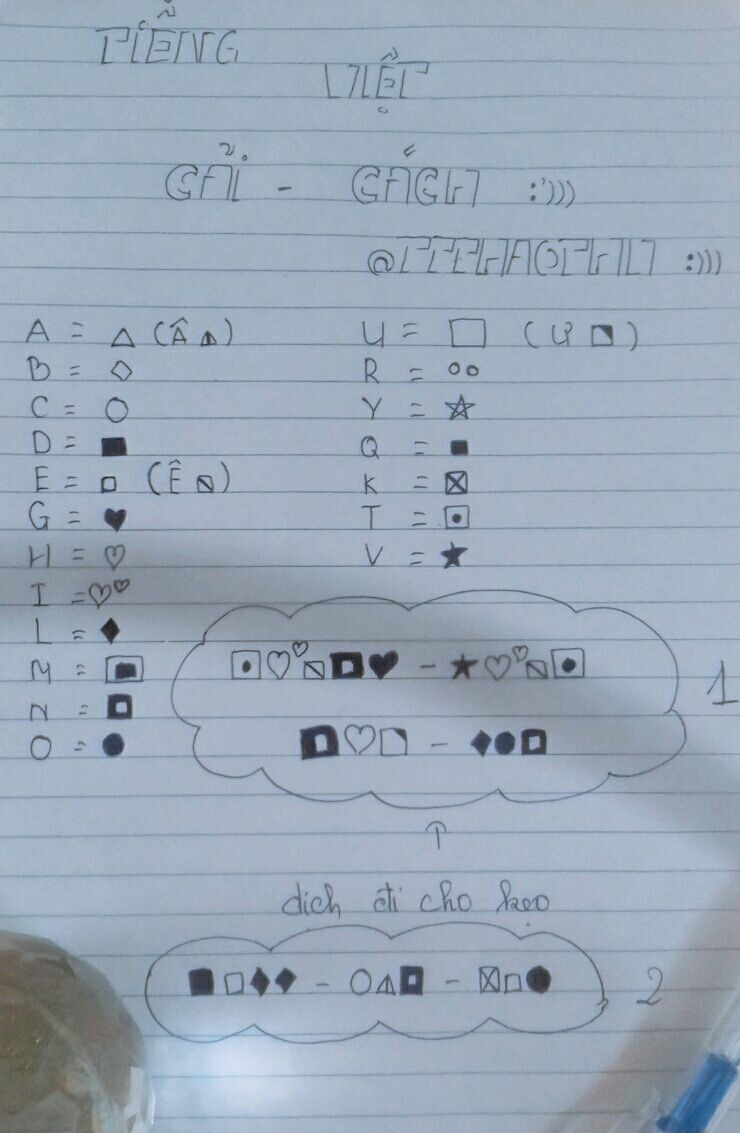 TIẾNG
VIỆT
CẢI - CÁCH :')))
A = △ (Â ◭)
B = ◇
C = ○
D = ■
E = □ (Ê ⍂)
G = ♥
H = ♡
I = ♡♡
L = ♦
M = ▣
N = ▣
O = ●
U = □ (Ư ◥)
R = ○○
Y = ☆
Q = ■
K = ⊠
T = ⊡
V = ★
⊡♡♡⍂▣♥ - ★♡♡⍂⊡ 1
▣♡◥ - ♦●▣
↑
dịch đi cho kẹo
■□♦♦ - ○◭▣ - ⊠□● 2